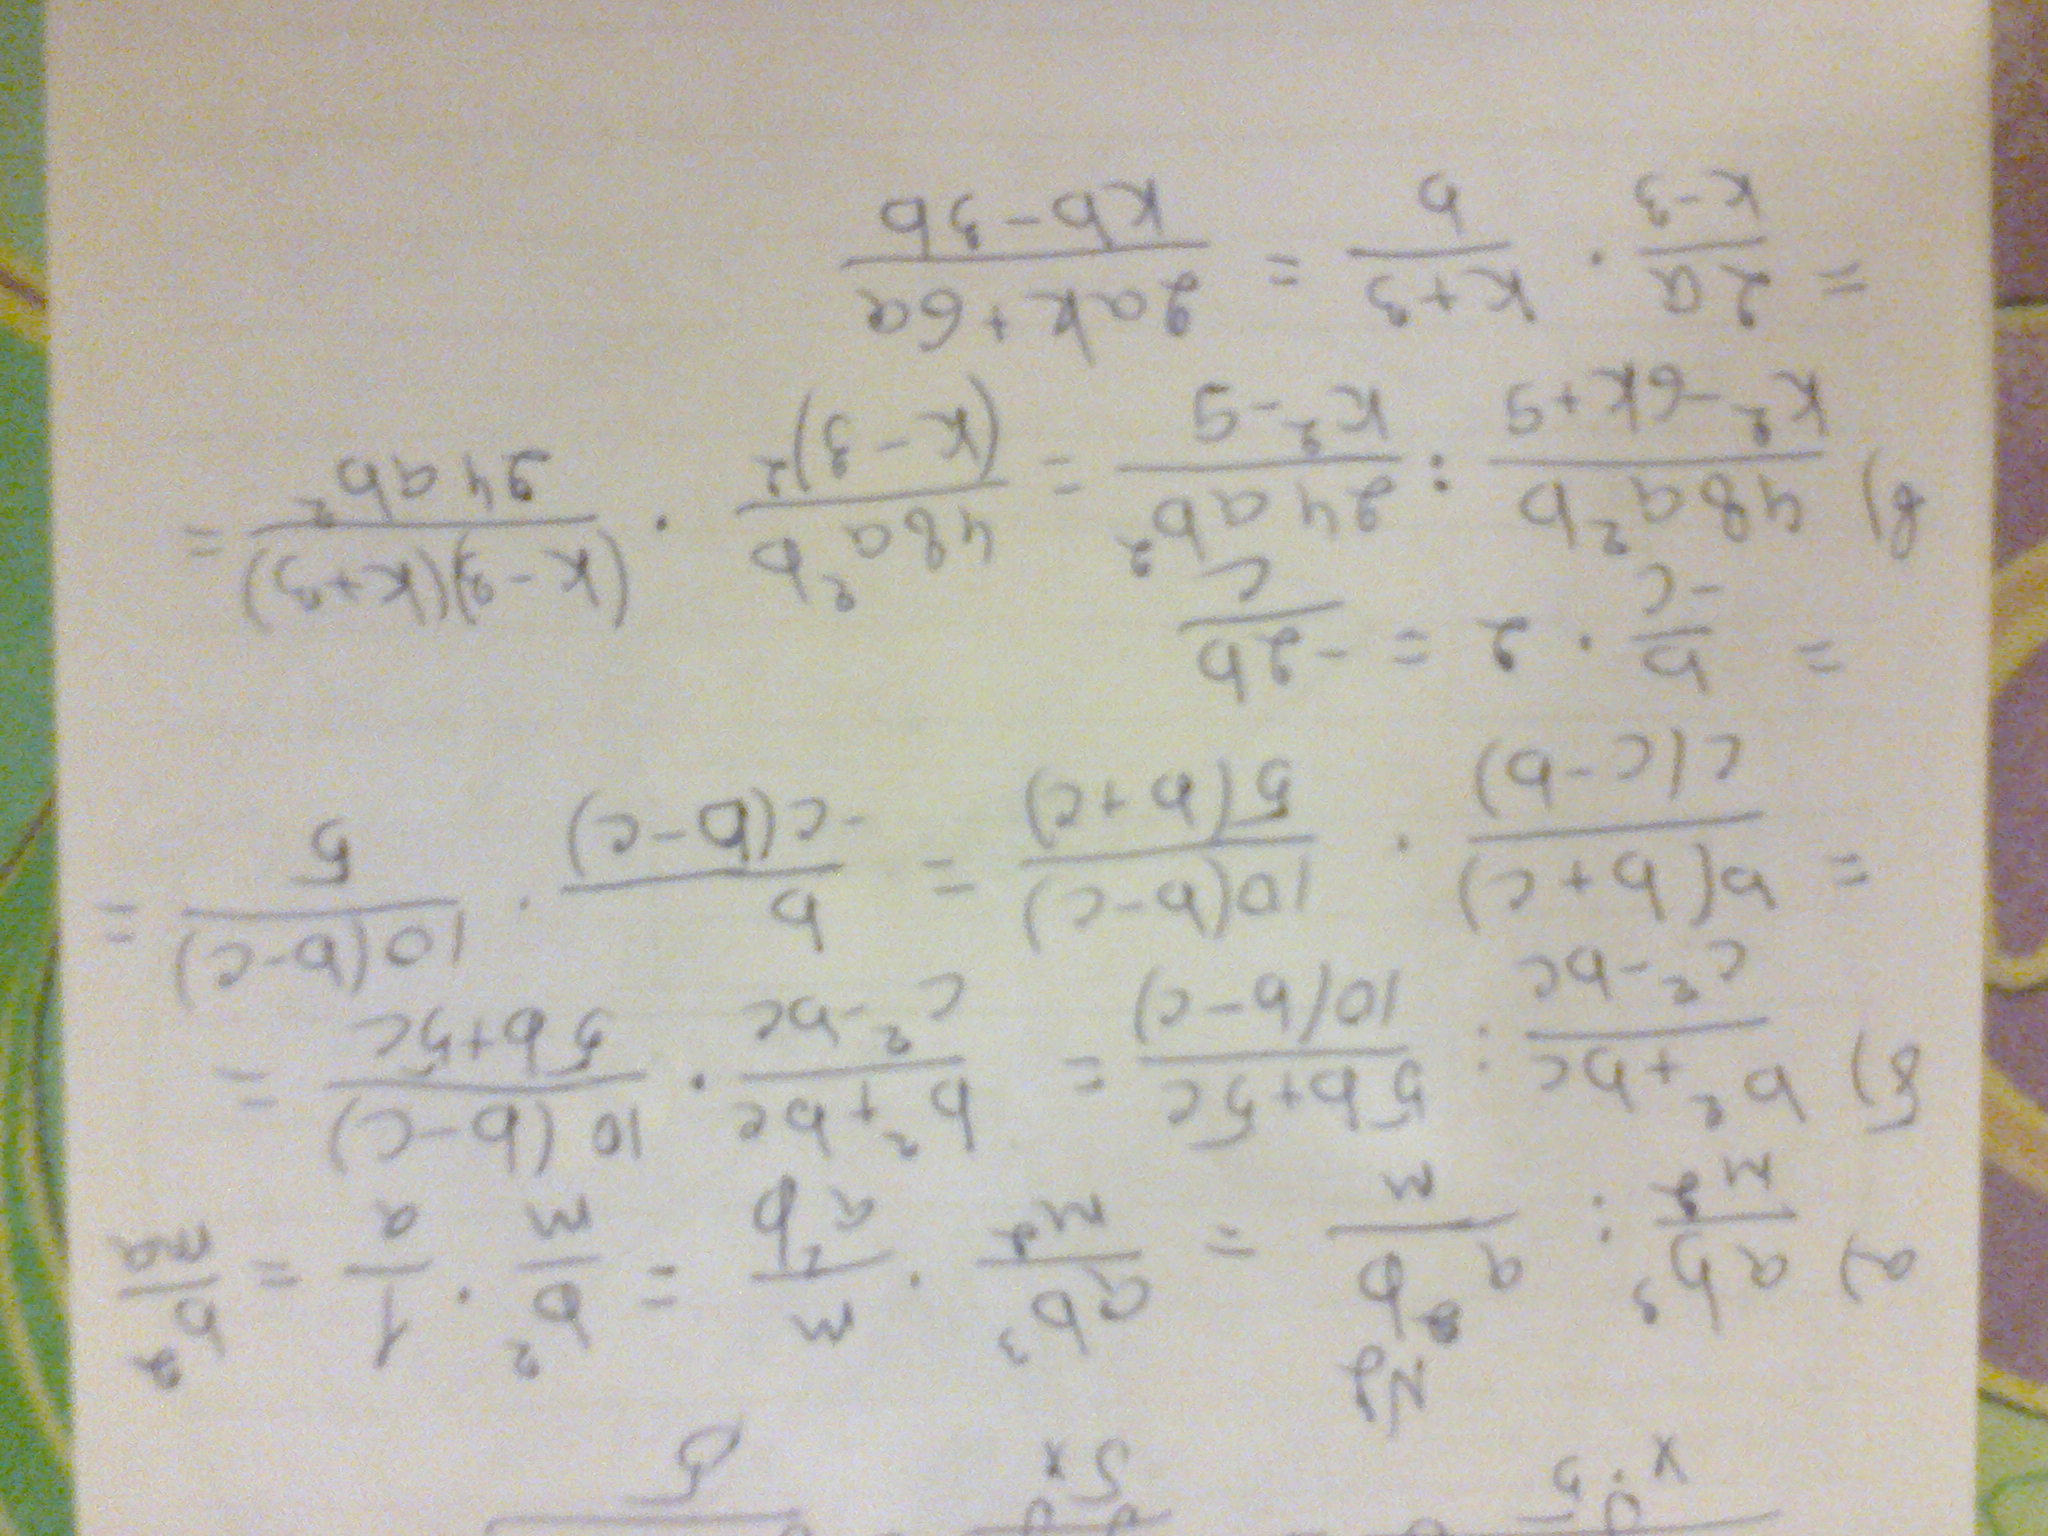 №2
а) ab³/m² : a²b/m = ab³/m² · m/a²b = b²/m · 1/a = b²/ma
б) b²+bc/c²-bc : 5b+5c/10(b-c) = b²+bc/c²-bc · 10(b-c)/5b+5c =
= b(b+c)/c(c-b) · 10(b-c)/5(b+c) = b/-c(b-c) · 10(b-c)/5 =
= b/-c · 2 = -2b/c
в) 48a²b/k²-6k+9 : 24ab²/k²-9 = 48a²b/(k-3)² · (k-3)(k+3)/24ab² =
= 2a/k-3 · k+3/b = 2ak+6a/kb-3b